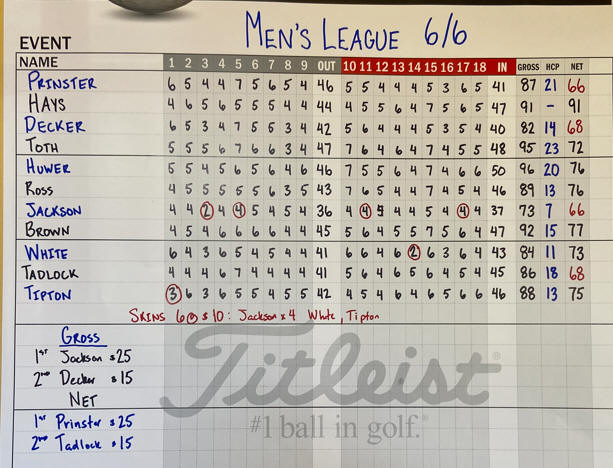 MEN'S LEAGUE 6/6
EVENT
NAME 1 2 3 4 5 6 7 8 9 OUT 10 11 12 13 14 15 16 17 18 IN GROSS HCP NET
PRINSTER 6 5 4 4 7 5 6 5 4 46 5 5 4 4 4 5 3 6 5 41 87 21 66
HAYS 4 6 5 6 5 5 5 4 4 44 4 5 5 6 4 7 5 6 5 47 91 - 91
DECKER 6 5 3 4 7 5 5 3 4 42 5 6 4 4 4 5 3 5 4 40 82 14 68
TOTH 5 5 5 6 7 6 6 3 4 47 7 6 4 6 4 7 4 5 5 48 95 23 72
HUWER 5 5 4 5 6 5 6 4 6 46 7 5 5 6 4 7 4 6 6 50 96 20 76
ROSS 4 5 5 5 5 5 6 3 5 43 7 6 5 4 4 7 4 5 4 46 89 13 76
JACKSON 4 4 2 4 4 5 4 5 4 36 4 4 5 4 4 5 4 4 4 37 73 7 66
BROWN 4 5 4 6 6 6 6 4 4 45 5 6 4 5 5 7 5 6 4 47 92 15 77
WHITE 6 4 3 6 5 4 5 4 4 41 6 6 4 6 2 6 3 6 4 43 84 11 73
TADLOCK 4 4 4 6 7 4 4 4 4 41 5 6 4 6 5 6 4 5 4 45 86 18 68
TIPTON 3 6 3 6 5 5 4 5 5 42 4 5 4 6 4 6 5 6 6 46 88 13 75
SKINS 6 @ $10: Jackson x 4 White, Tipton
GROSS
1st Jackson $25
2nd Decker $15
NET
1st Prinster $25
2nd Tadlock $15
Titleist
#1 ball in golf.